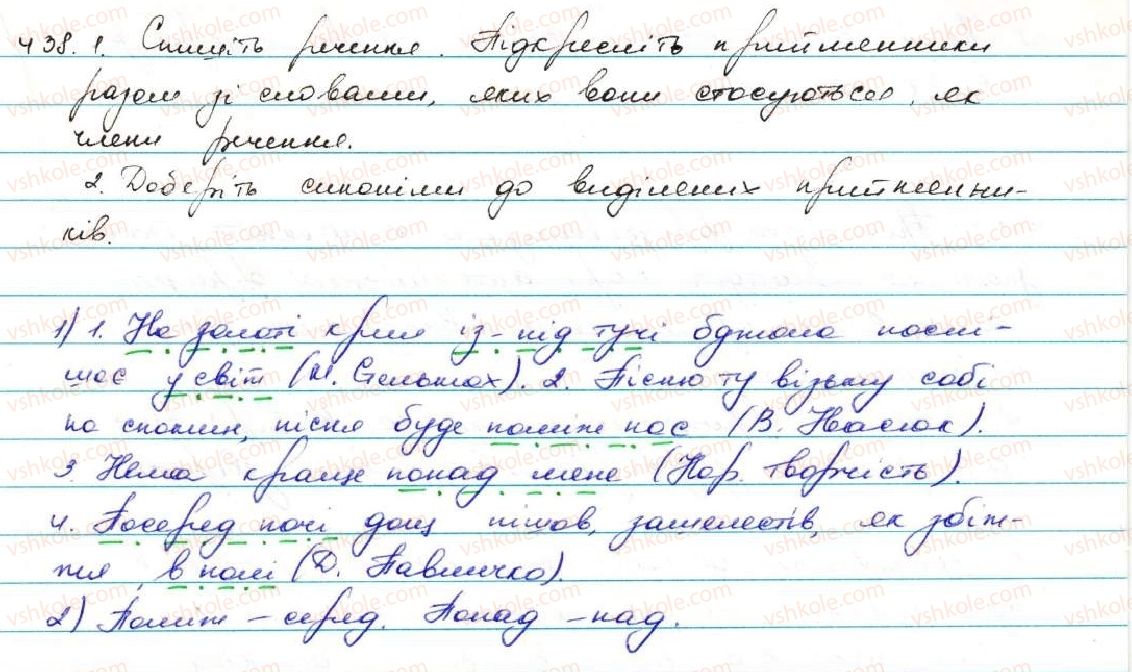 438. 1. Спишіть речення. Підкресліть прийменники
разом зі словами, яких вони стосуються, як
члени речення.
2. Доберіть синоніми до виділених прийменни-
ків.
1) 1. На золоті крил із-під тучі бджола поспі-
шає у світ (М. Стельмах). 2. Пісню ту візьму собі
на спомин, пісня буде поміж нас (В. Івасюк).
3. Нема краще понад мене (Нар. творчість).
4. Посеред ночі дощ пішов, зашелестів, як збіж-
жя в полі (Д. Павличко).
2) Поміж – серед. Понад – над.